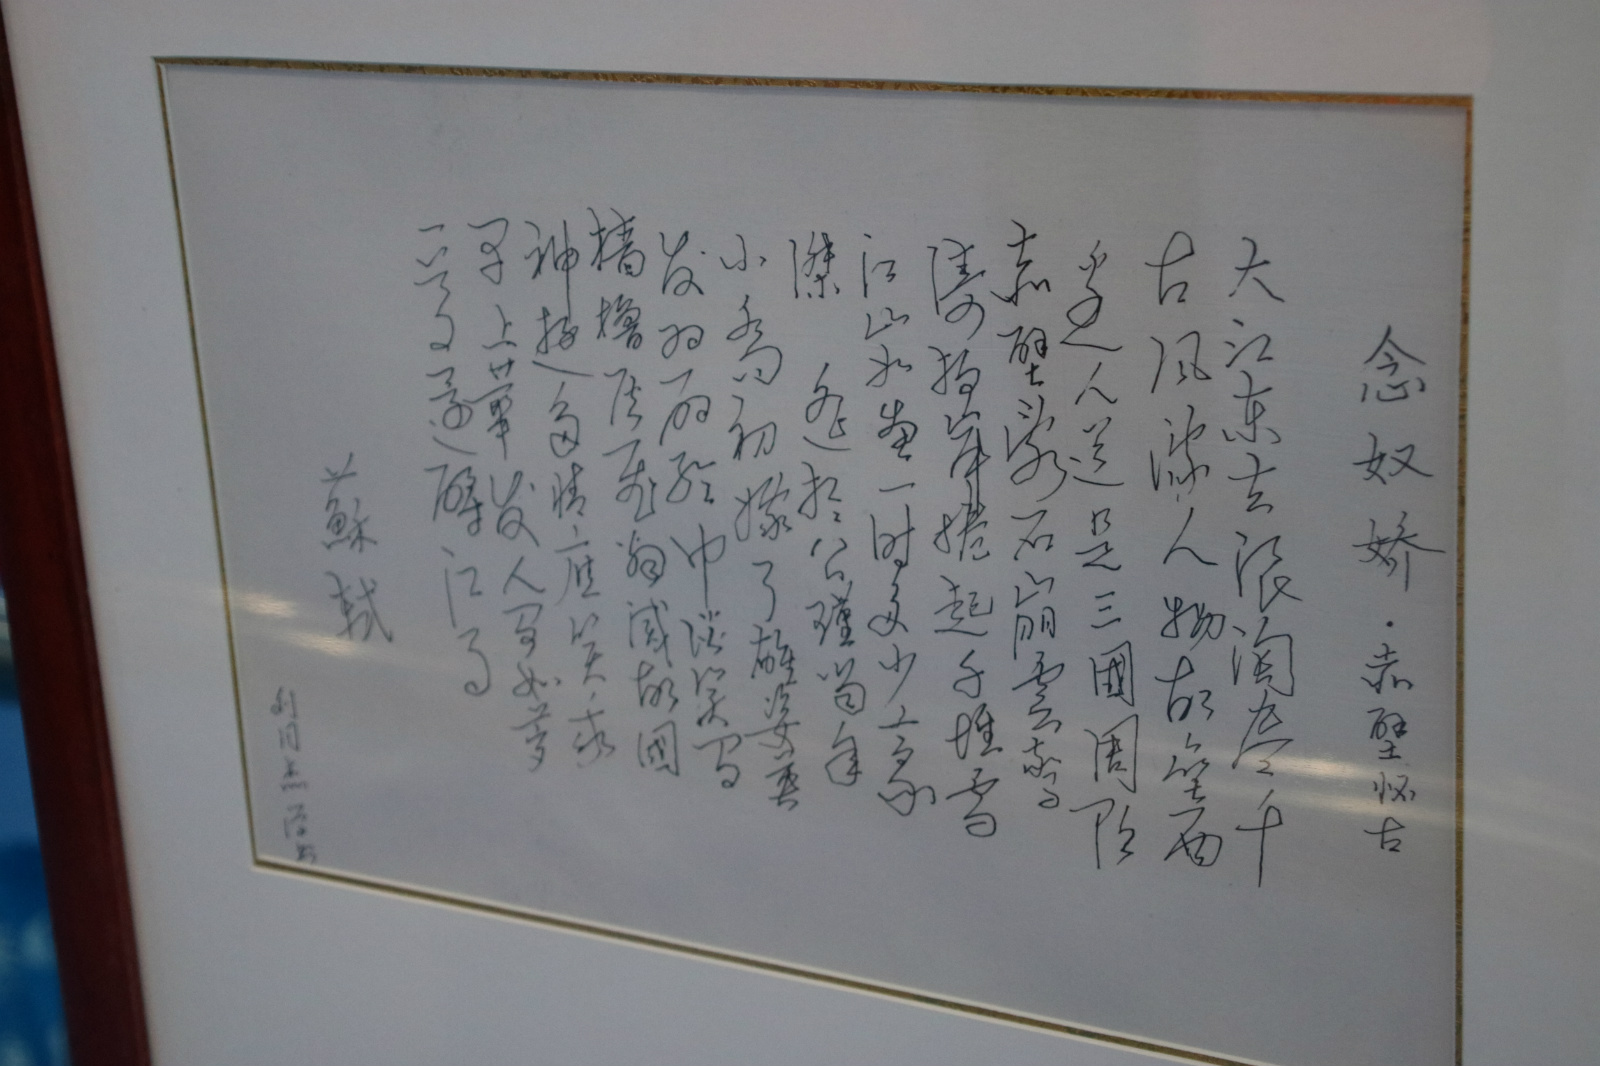 念奴娇·赤壁怀古
大江东去浪淘尽千
古风流人物故垒西
边人道是三國周郎
赤壁乱石崩雲驚
濤拍岸捲起千堆雪
江山如畫一时多少豪
傑 遥想公瑾當年
小喬初嫁了雄姿英
发羽扇纶巾谈笑间
檣櫓灰飛烟滅故國
神遊多情应笑我
早生華发人间如夢
一尊還酹江月
蘇軾